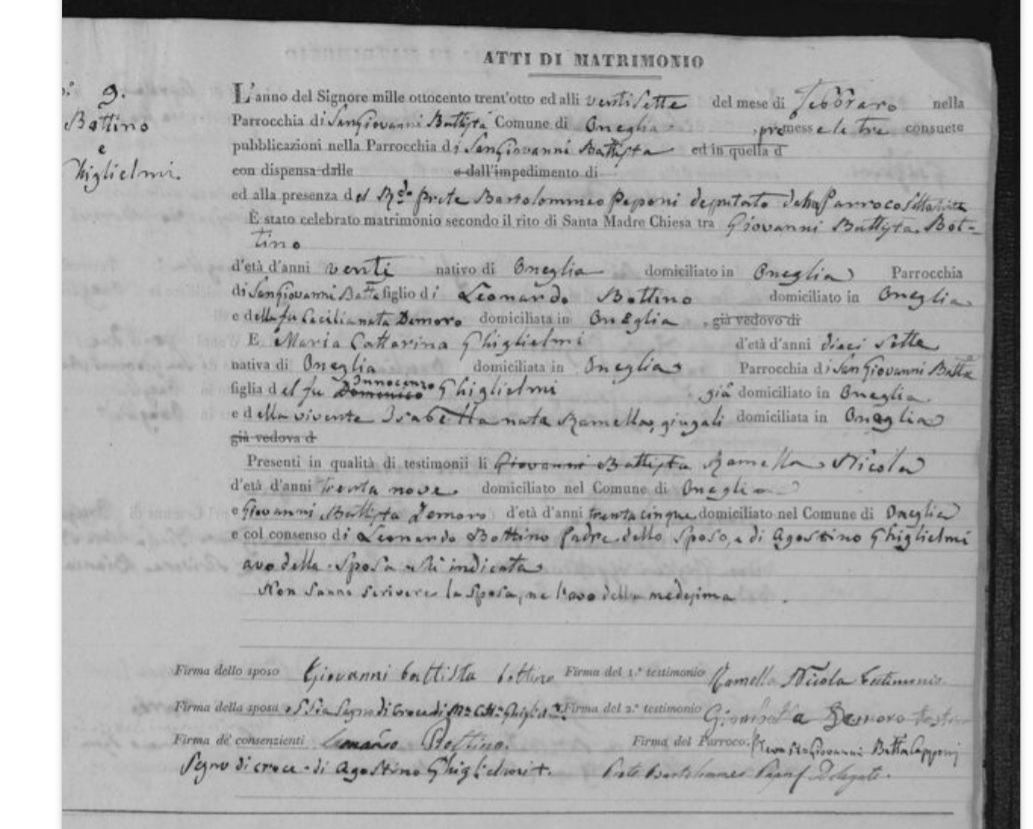 ATTI DI MATRIMONIO
9.
Bottino
e
Ghiglielmi.
L'anno del Signore mille ottocento trent'otto ed alli ventisette del mese di Febbraro nella
Parrocchia di San Giovanni Battista Comune di Oneglia premesse le tre consuete
pubblicazioni nella Parrocchia di San Giovanni Battista ed in quella d
con dispensa dalle e dall'impedimento di
ed alla presenza del Rdo Prete Bartolommeo Peponi deputato della Parroco
È stato celebrato matrimonio secondo il rito di Santa Madre Chiesa tra Giovanni Battista Bot-
tino
d'età d'anni venti nativo di Oneglia domiciliato in Oneglia Parrocchia
di San Giovanni Batta figlio di Leonardo Bottino domiciliato in Oneglia
e della fu Cecilia nata Demoro domiciliata in Oneglia già vedovo di
E Maria Catterina Ghiglielmi d'età d'anni dieci sette
nativa di Oneglia domiciliata in Oneglia Parrocchia di San Giovanni Batta
figlia del fu Domenico Innocenzo Ghiglielmi già domiciliato in Oneglia
e della vivente Isabella nata Ramella, giugali domiciliata in Oneglia
già vedova d
Presenti in qualità di testimonii li Giovanni Battista Ramella Nicola
d'età d'anni trenta nove domiciliato nel Comune di Oneglia
e Giovanni Battista Demoro d'età d'anni trentacinque domiciliato nel Comune di Oneglia
e col consenso di Leonardo Bottino Padre dello Sposo, e di Agostino Ghiglielmi
avo della Sposa indicata
Non sanno scrivere la Sposa, ne l'avo della medesima
Firma dello sposo Giovanni battista bottino Firma del 1.º testimonio Ramella Nicola testimonio
Firma della sposa Segno di croce di Ma Catta Ghiglielmi Firma del 2.º testimonio Giombatta Demoro
Firma de' consenzienti Leonardo Bottino. Firma del Parroco. Giovanni Batta
Segno di croce di Agostino Ghiglielmi +. Prete Bartolomeo Delegato.